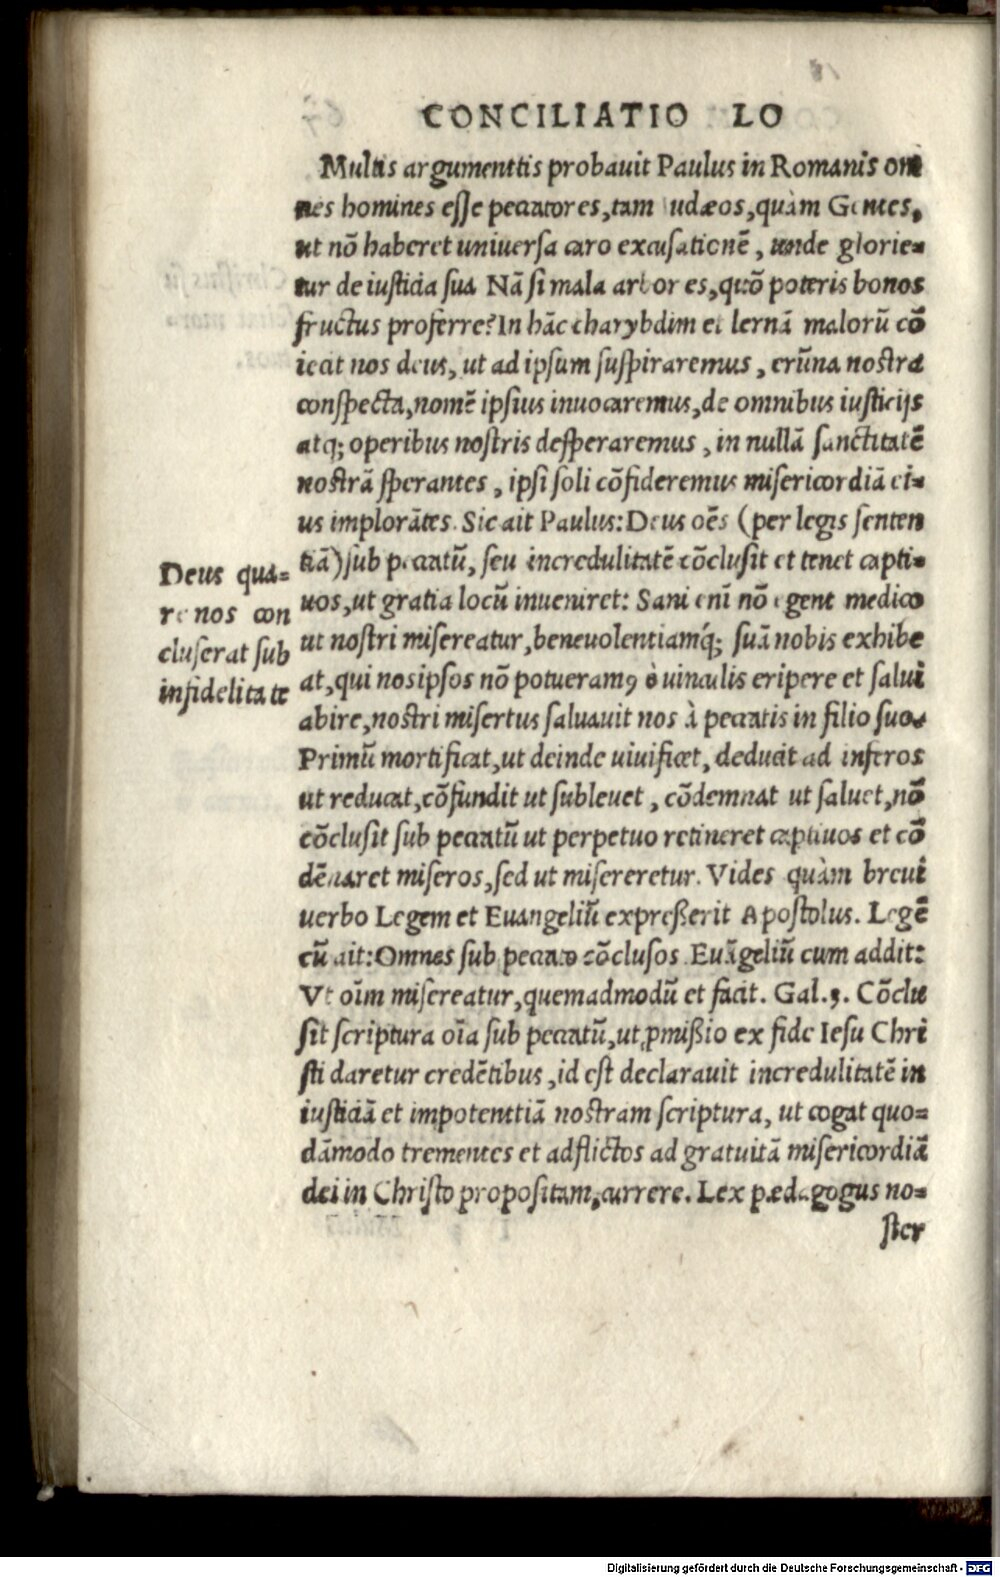 CONCILIATIO LO
Multis argumenttis probauit Paulus in Romanis om
nes homines esse peccatores, tam udæos, quàm Gentes,
ut nõ haberet uniuersa caro excusationẽ, unde glorie=
tur de iusticia sua Nã si mala arbores, quõ poteris bonos
fructus proferre? In hãc charybdim et lernã malorũ cõ
iecit nos deus, ut ad ipsum suspiraremus, erũna nostra
conspecta, nomẽ ipsius inuocaremus, de omnibus iusticijs
atq; operibus nostris desperaremus, in nullã sanctitatẽ
nostrã sperantes, ipsi soli cõfideremus misericordiã ei=
us implorãtes. Sic ait Paulus: Deus oẽs (per legis senten
tiã) sub peccatũ, seu incredulitatẽ cõclusit et tenet capti=
uos, ut gratia locũ inueniret: Sani enĩ nõ egent medico
ut nostri misereatur, beneuolentiamq́; suã nobis exhibe
at, qui nosipsos nõ potueramꝰ è uinculis eripere et salui
abire, nostri misertus saluauit nos à peccatis in filio suo.
Primũ mortificat, ut deinde uiuificet, deducit ad inferos
ut reducat, cõfundit ut subleuet, cõdemnat ut saluet, nõ
cõclusit sub peccatũ ut perpetuo retineret captiuos et cõ
dẽnaret miseros, sed ut misereretur. Vides quàm breui
uerbo Legem et Euangeliũ expreßerit Apostolus. Legẽ
cũ ait: Omnes sub peccato cõclusos. Euãgeliũ cum addit:
Vt oĩm misereatur, quemadmodũ et facit. Gal. 3. Cõclu
sit scriptura oĩa sub peccatũ, ut ꝓmißio ex fide Iesu Chri
sti daretur credẽtibus, id est declarauit incredulitatẽ in
iusticiã et impotenttiã nostram scriptura, ut cogat quo=
dãmodo trementes et adflictos ad gratuitã misericordiã
dei in Christo propositam, currere. Lex pædagogus no=
ster
Deus qua=
re nos con
cluserat sub
infidelitate
Digitalisierung gefördert durch die Deutsche Forschungsgemeinschaft - DFG